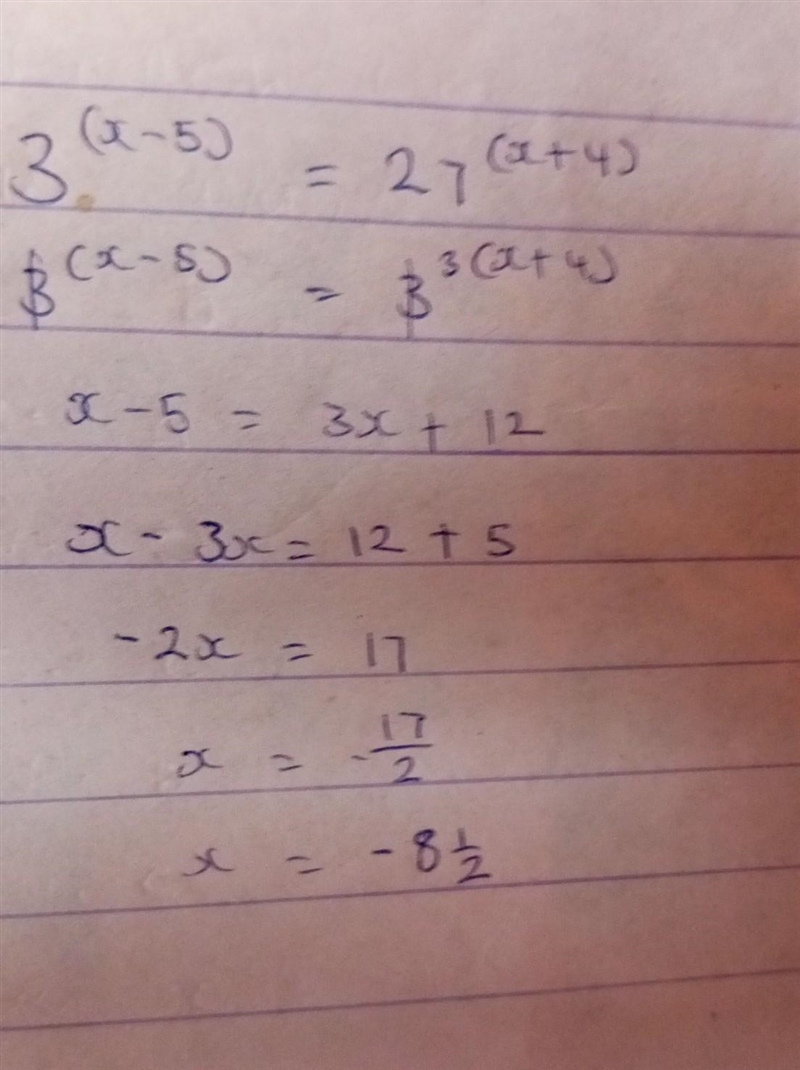 3^(x-5) = 27^(x+4)
3^(x-5) = 3^3(x+4)
x-5 = 3x + 12
x - 3x = 12 + 5
-2x = 17
x = -17/2
x = -8 1/2